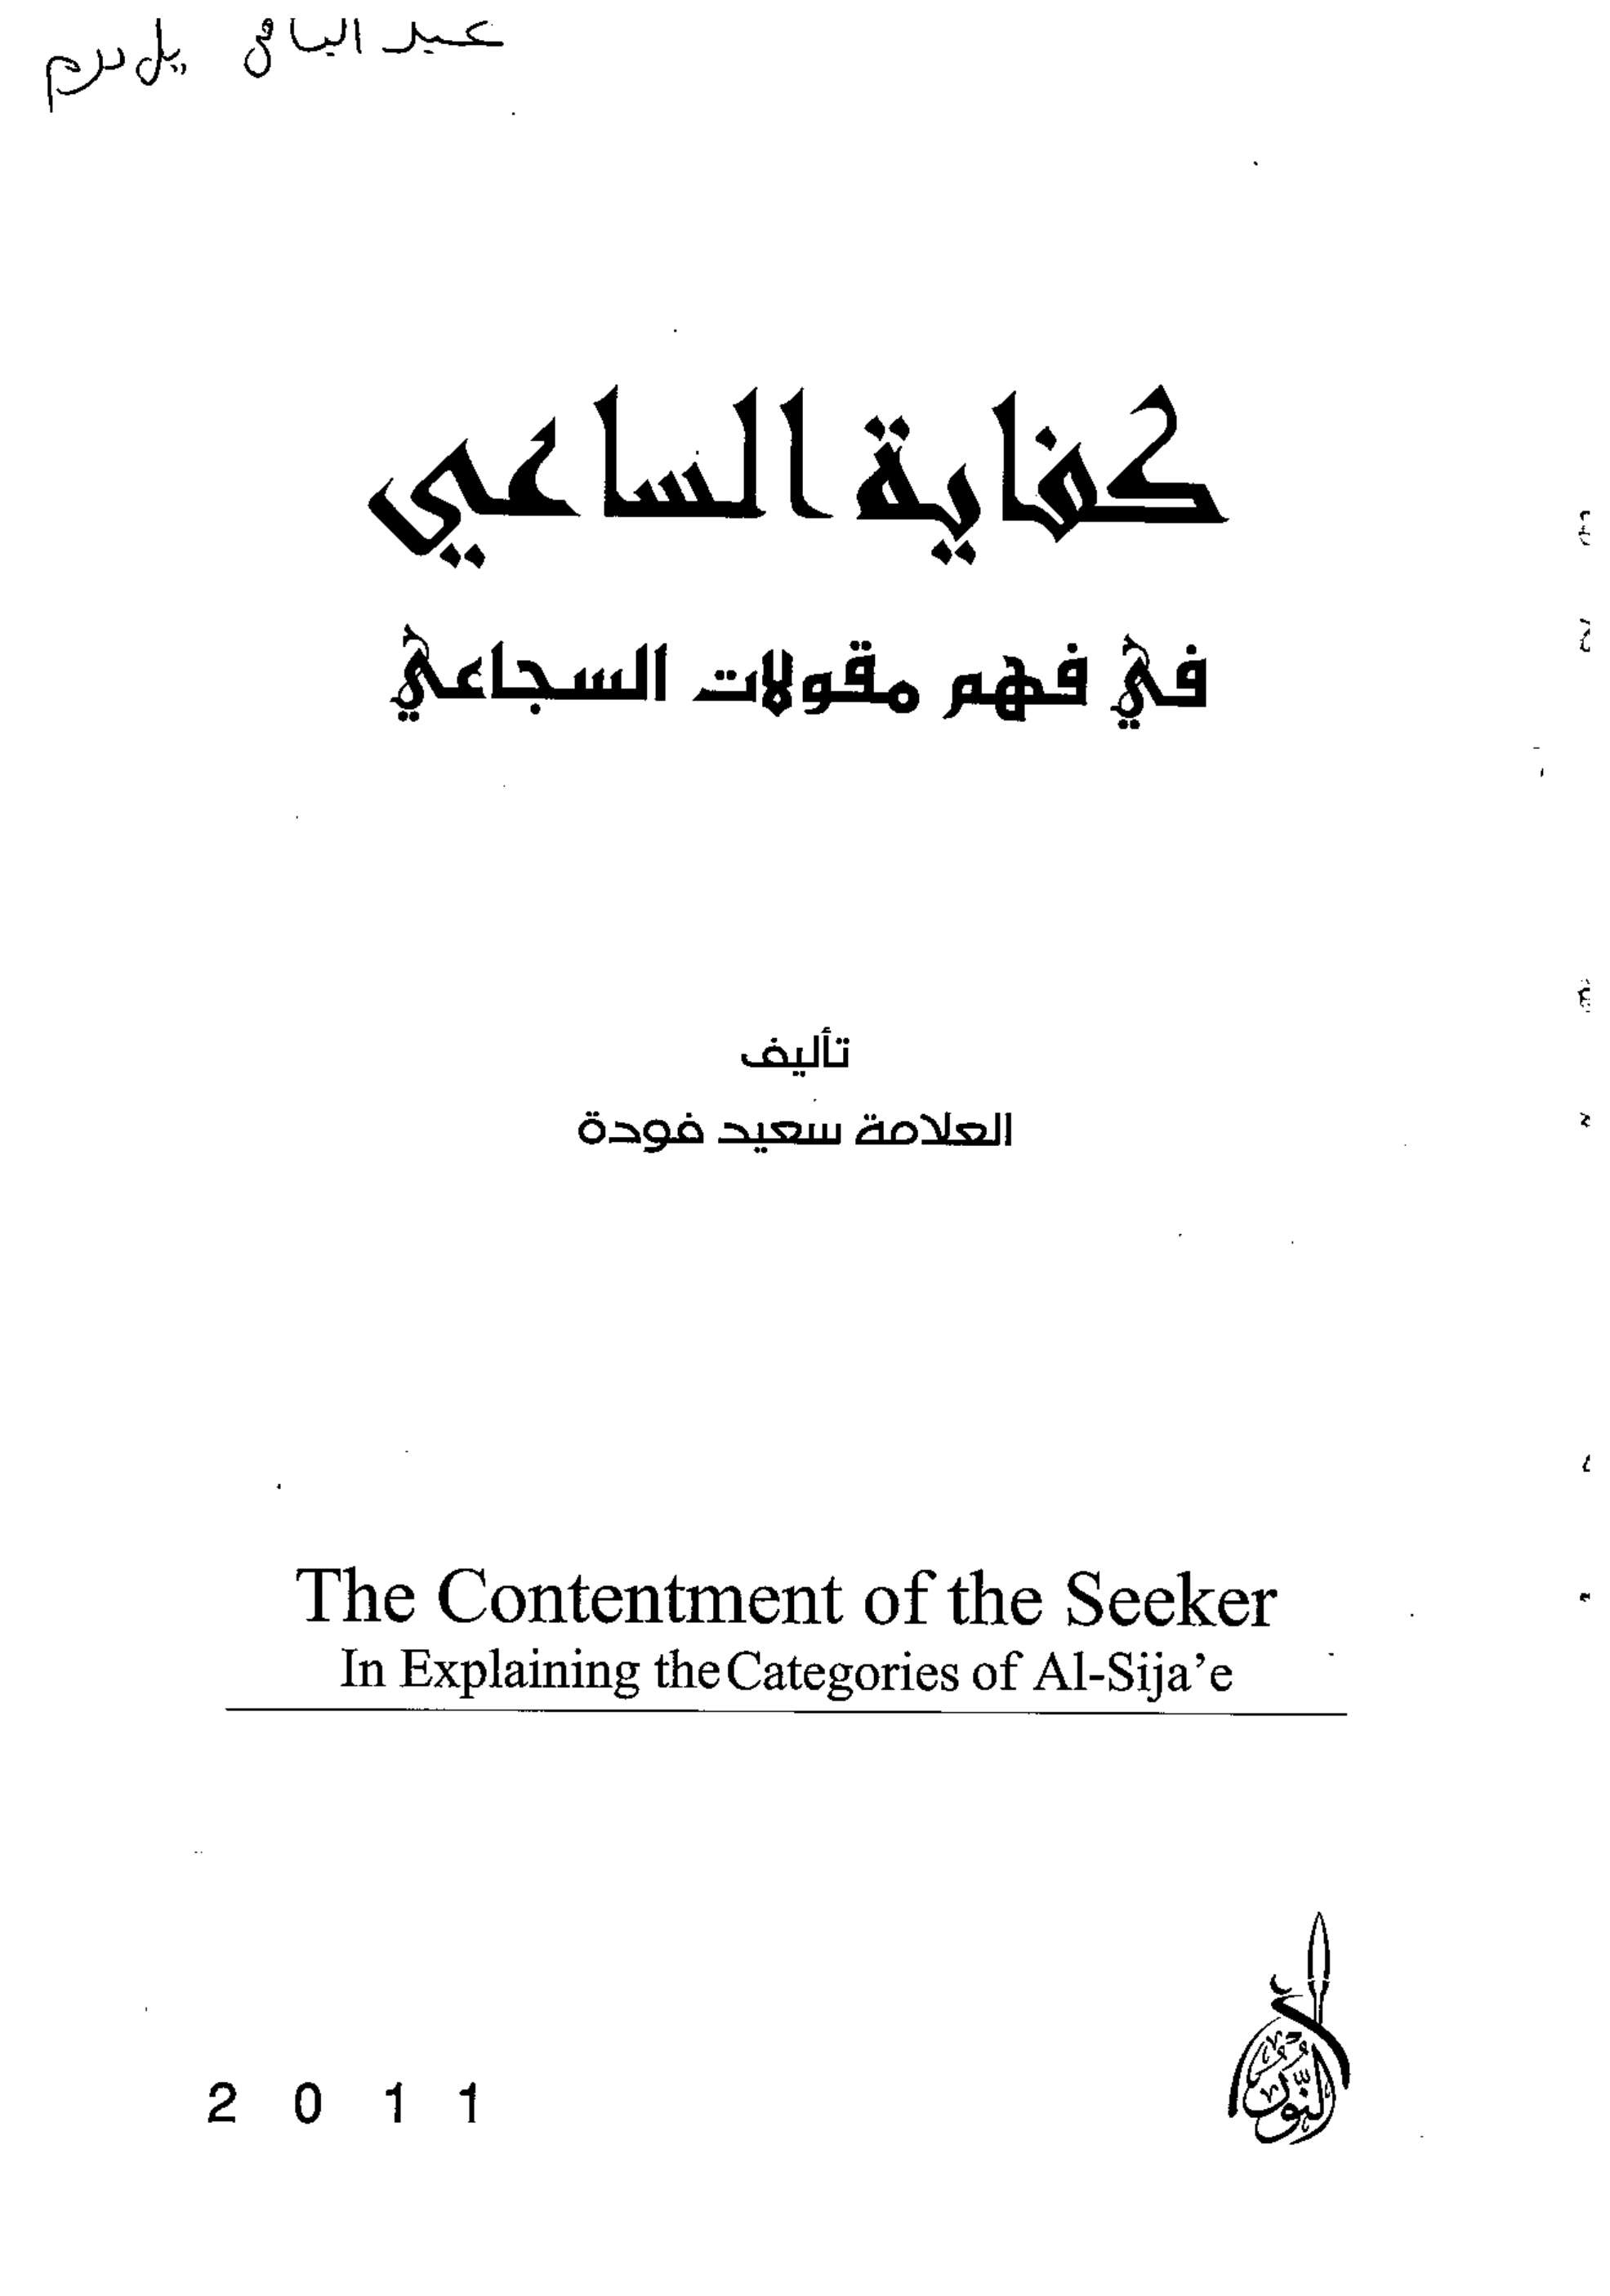 عبد الباقي يلدرم
كفاية الساعي
في فهم مقولات السجاعي
تأليف
العلامة سعيد فودة
The Contentment of the Seeker
In Explaining the Categories of Al-Sija'e
2 0 1 1
النور